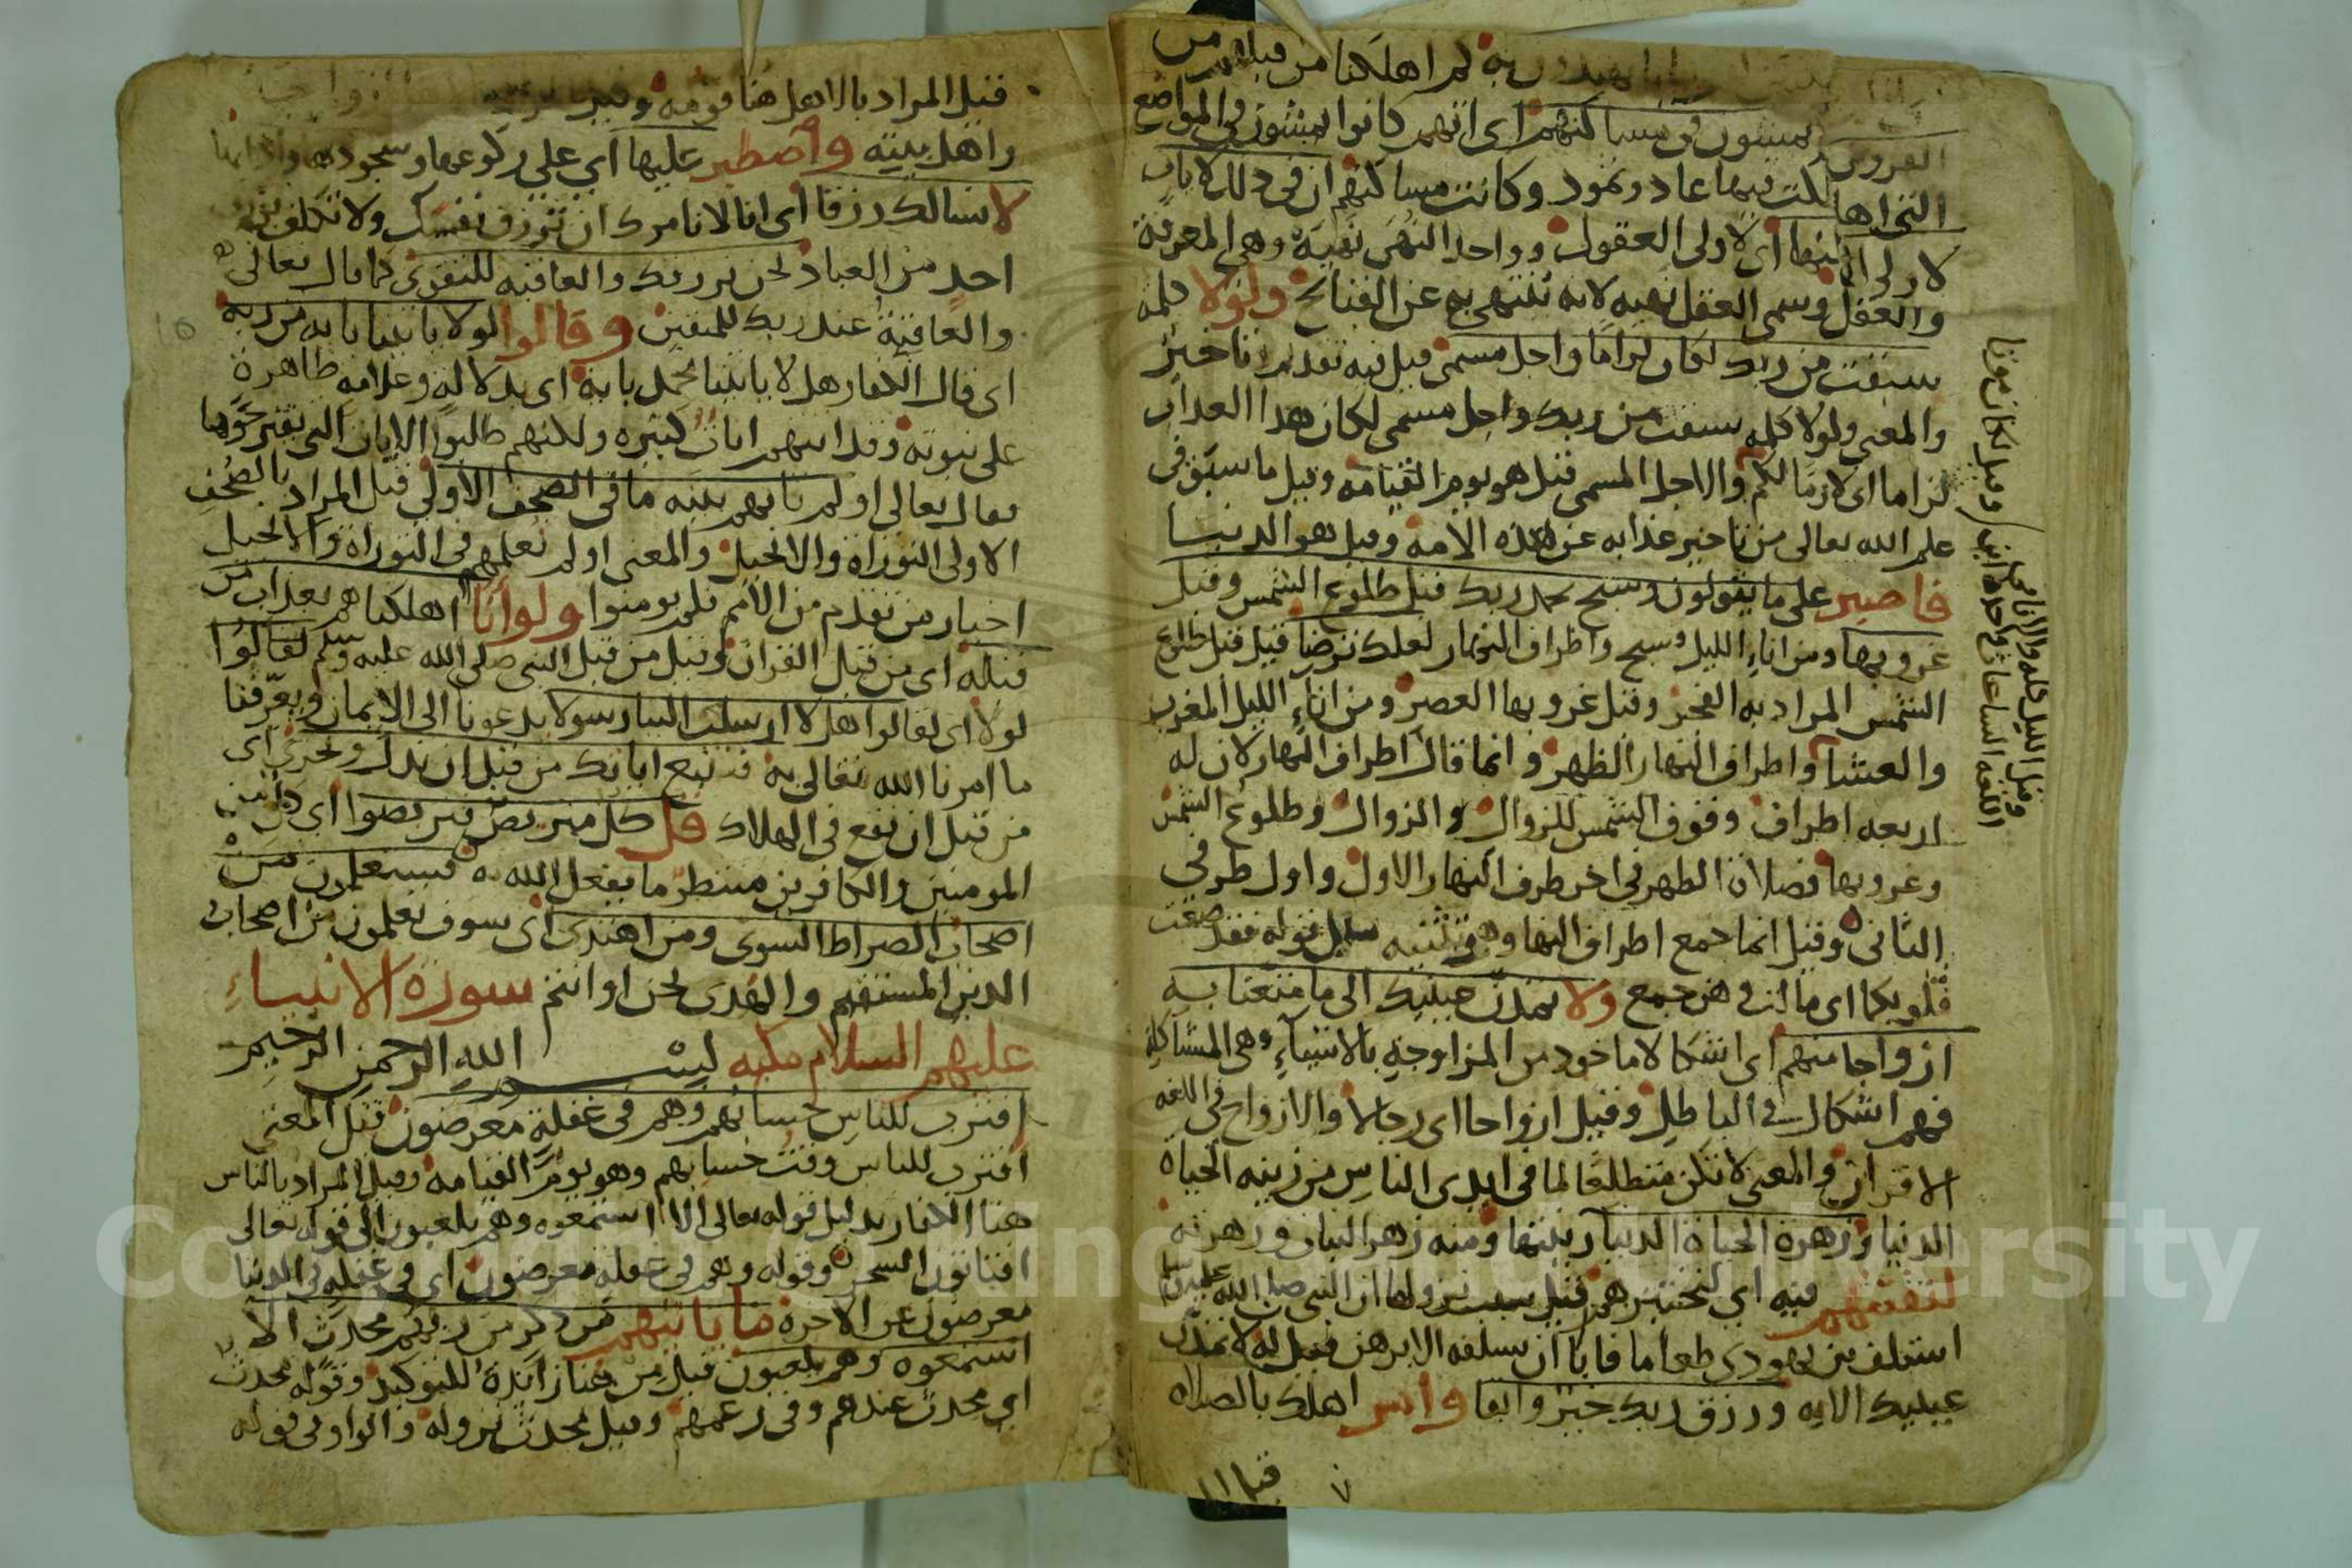 به كم اهلكنا من قبلهم من
القرون يمشون في مساكنهم اى انهم كانوا يمشون في المواضع
التى اهلكت فيها عاد وثمود وكانت مساكنهم ان في ذلك لايات
لاولى النهى اى لاولى العقول وواحد النهى نهية وهى المعرفة
والعقل وسمى العقل نهيه لانه ينتهى به عن القبائح ولولا كلمة
سبقت من ربك لكان لزاما واجل مسمى قيل فيه تقديم وتاخير
والمعنى ولولا كلمه سبقت من ربك واجل مسمى لكان هذا العذاب
لزاما اى لازما لكم والاجل المسمى قيل هو يوم القيامه وقيل ما سبق في
علم الله تعالى من تاخير عذابه عن هذه الامة وقيل هو الدنيا
فاصبر على ما يقولون وسبح بحمد ربك قبل طلوع الشمس وقبل
غروبها ومن اناء الليل فسبح واطراف النهار لعلك ترضا قيل قبل طلوع
الشمس المراد به الفجر وقبل غروبها العصر ومن اناء الليل المغرب
والعشاء واطراف النهار الظهر وانما قال اطراف النهار لان له
اربعه اطراف وقوف الشمس للزوال والزوال وطلوع الشمس
وغروبها فصلاة الظهر في اخر طرف النهار الاول واول طرفي
الثانى وقيل انما جمع اطراف النهار وهو في تثنيه مثل قوله فقد صغت
قلوبكما اى مالت وهن جمع ولا تمدن عينيك الى ما متعنا به
ازواجا منهم اى اشكالا ماخوذ من المزاوجة بالاشياء وهى المشاكلة
فهم اشكال في الباطل وقيل ازواجا اى رجالا والازواج في اللغه
الاقران والمعنى لا تكن متطلعا لما في ايدى الناس من زينه الحياة
الدنيا وزهرة الحياة الدنيا زينتها ومنه زهر النبات وزهرته
لنفتنهم فيه اى لنختبرهم قيل سبب نزولها ان النبى صلى الله عليه وسلم
استلف من يهودى طعاما فابا ان يسلفه الا برهن فقيل له لا تمدن
عينيك الايه ورزق ربك خير وابقا وامر اهلك بالصلاه
قيل
وقيل اناء الليل كله والانا
اللغه الساعات واحدها انى
قيل المراد بالاهل هنا قومه وقيل
واهل بيته واصطبر عليها اى على ركوعها وسجودها
لا نسالك رزقا اى انا لا نامرك ان ترزق نفسك ولا تكلف برزق
احد من العباد نحن نرزقك والعاقبه للتقوى كما قال تعالى
والعاقبة عند ربك للمتقين وقالوا لولا ياتينا باية من ربه
اى قال الكفار هلا ياتينا محمد باية اى بدلالة وعلامه ظاهرة
على نبوته وقد اتيهم ايات كثيره ولكنهم طلبوا الايات التى يقترحونها
فقال تعالى اولم تاتيهم بينه ما في الصحف الاولى قيل المراد بالصحف
الاولى التوراة والانجيل والمعنى اولم نعلمهم في التوراة والانجيل
اخبار من تقدم من الامم فلم يومنوا ولو انا اهلكناهم بعذاب من
قبله اى من قبل القران وقيل من قبل النبى صلى الله عليه وسلم لقالوا
لولا اى لقالوا هلا ارسلت الينا رسولا يدعونا الى الايمان ويعرفنا
ما امرنا الله تعالى به فنتبع اياتك من قبل ان نذل ونخزى اى
من قبل ان نقع في الهلاك قل كل متربص فتربصوا اى كل من
المومنين والكافرين منتظر ما يفعل الله به فستعلمون من
اصحاب الصراط السوى ومن اهتدى اى سوف تعلمون من اصحاب
الدين المستقيم والهدى نحن او انتم سورة الانبياء
عليهم السلام مكيه بسم الله الرحمن الرحيم
اقترب للناس حسابهم وهم في غفلة معرضون قيل المعنى
اقترب للناس وقت حسابهم وهو يوم القيامه وقيل المراد بالناس
هنا الكفار بدليل قوله تعالى الا استمعوه وهم يلعبون الى قوله تعالى
افتاتون السحر وقوله وهم في غفلة معرضون اى في غفلة في الدنيا
معرضون عن الاخرة ما ياتيهم من ذكر من ربهم محدث الا
استمعوه وهم يلعبون قيل من هنا زايدة للتوكيد وقوله محدث
اى محدث عندهم وفى زعمهم وقيل محدث نزوله والواو في قوله